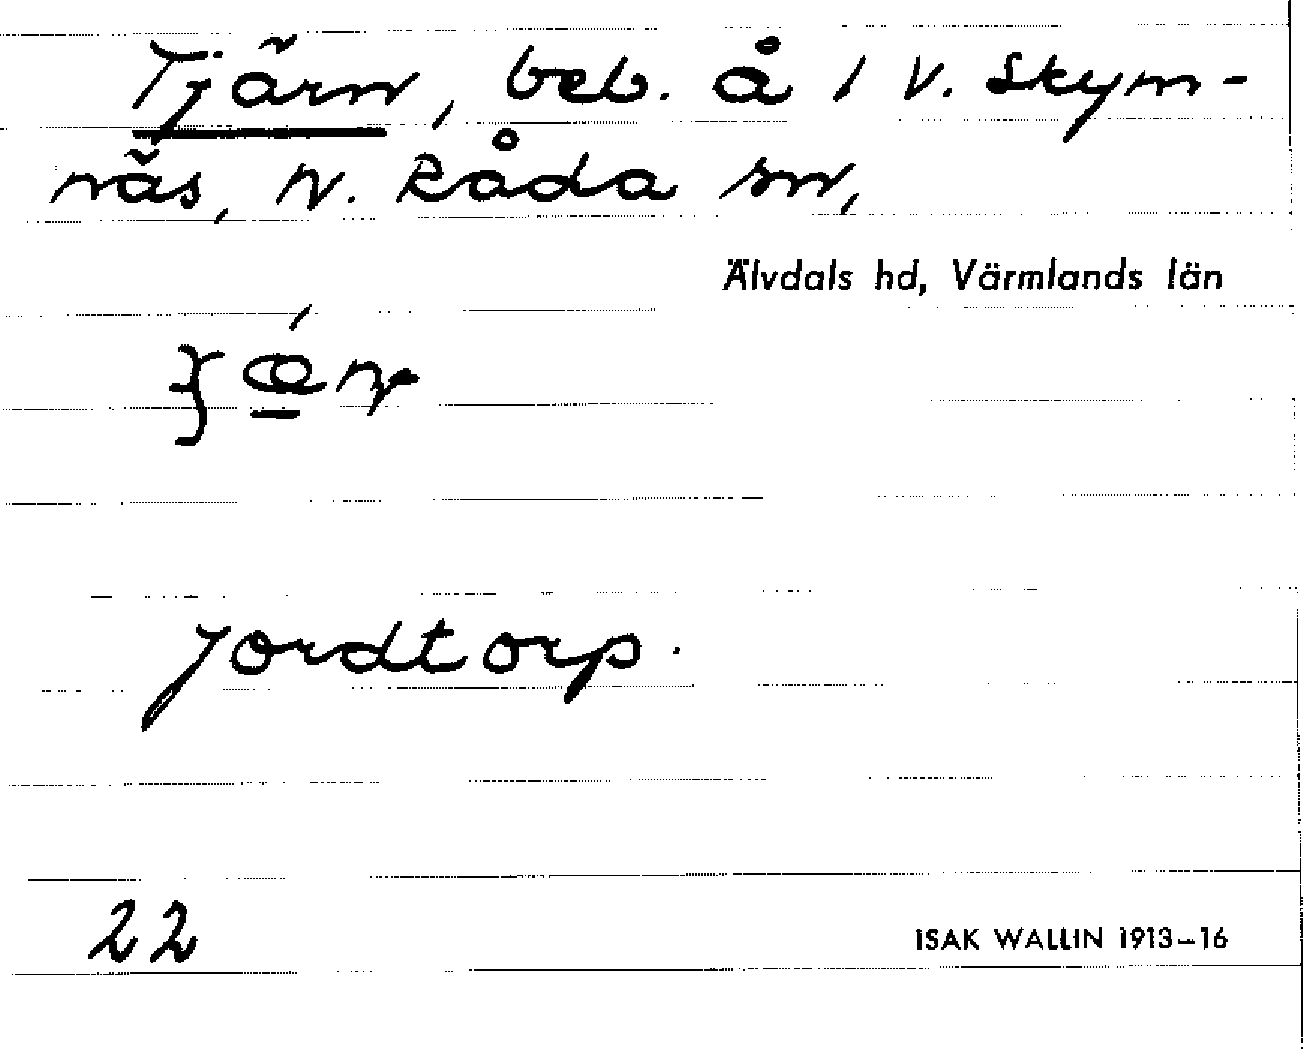 Tjärn, beb. å 1 V. Skym-
näs, N. Råda sn,
Älvdals hd, Värmlands län
Jordtorp.
22
ISAK WALLIN 1913–16